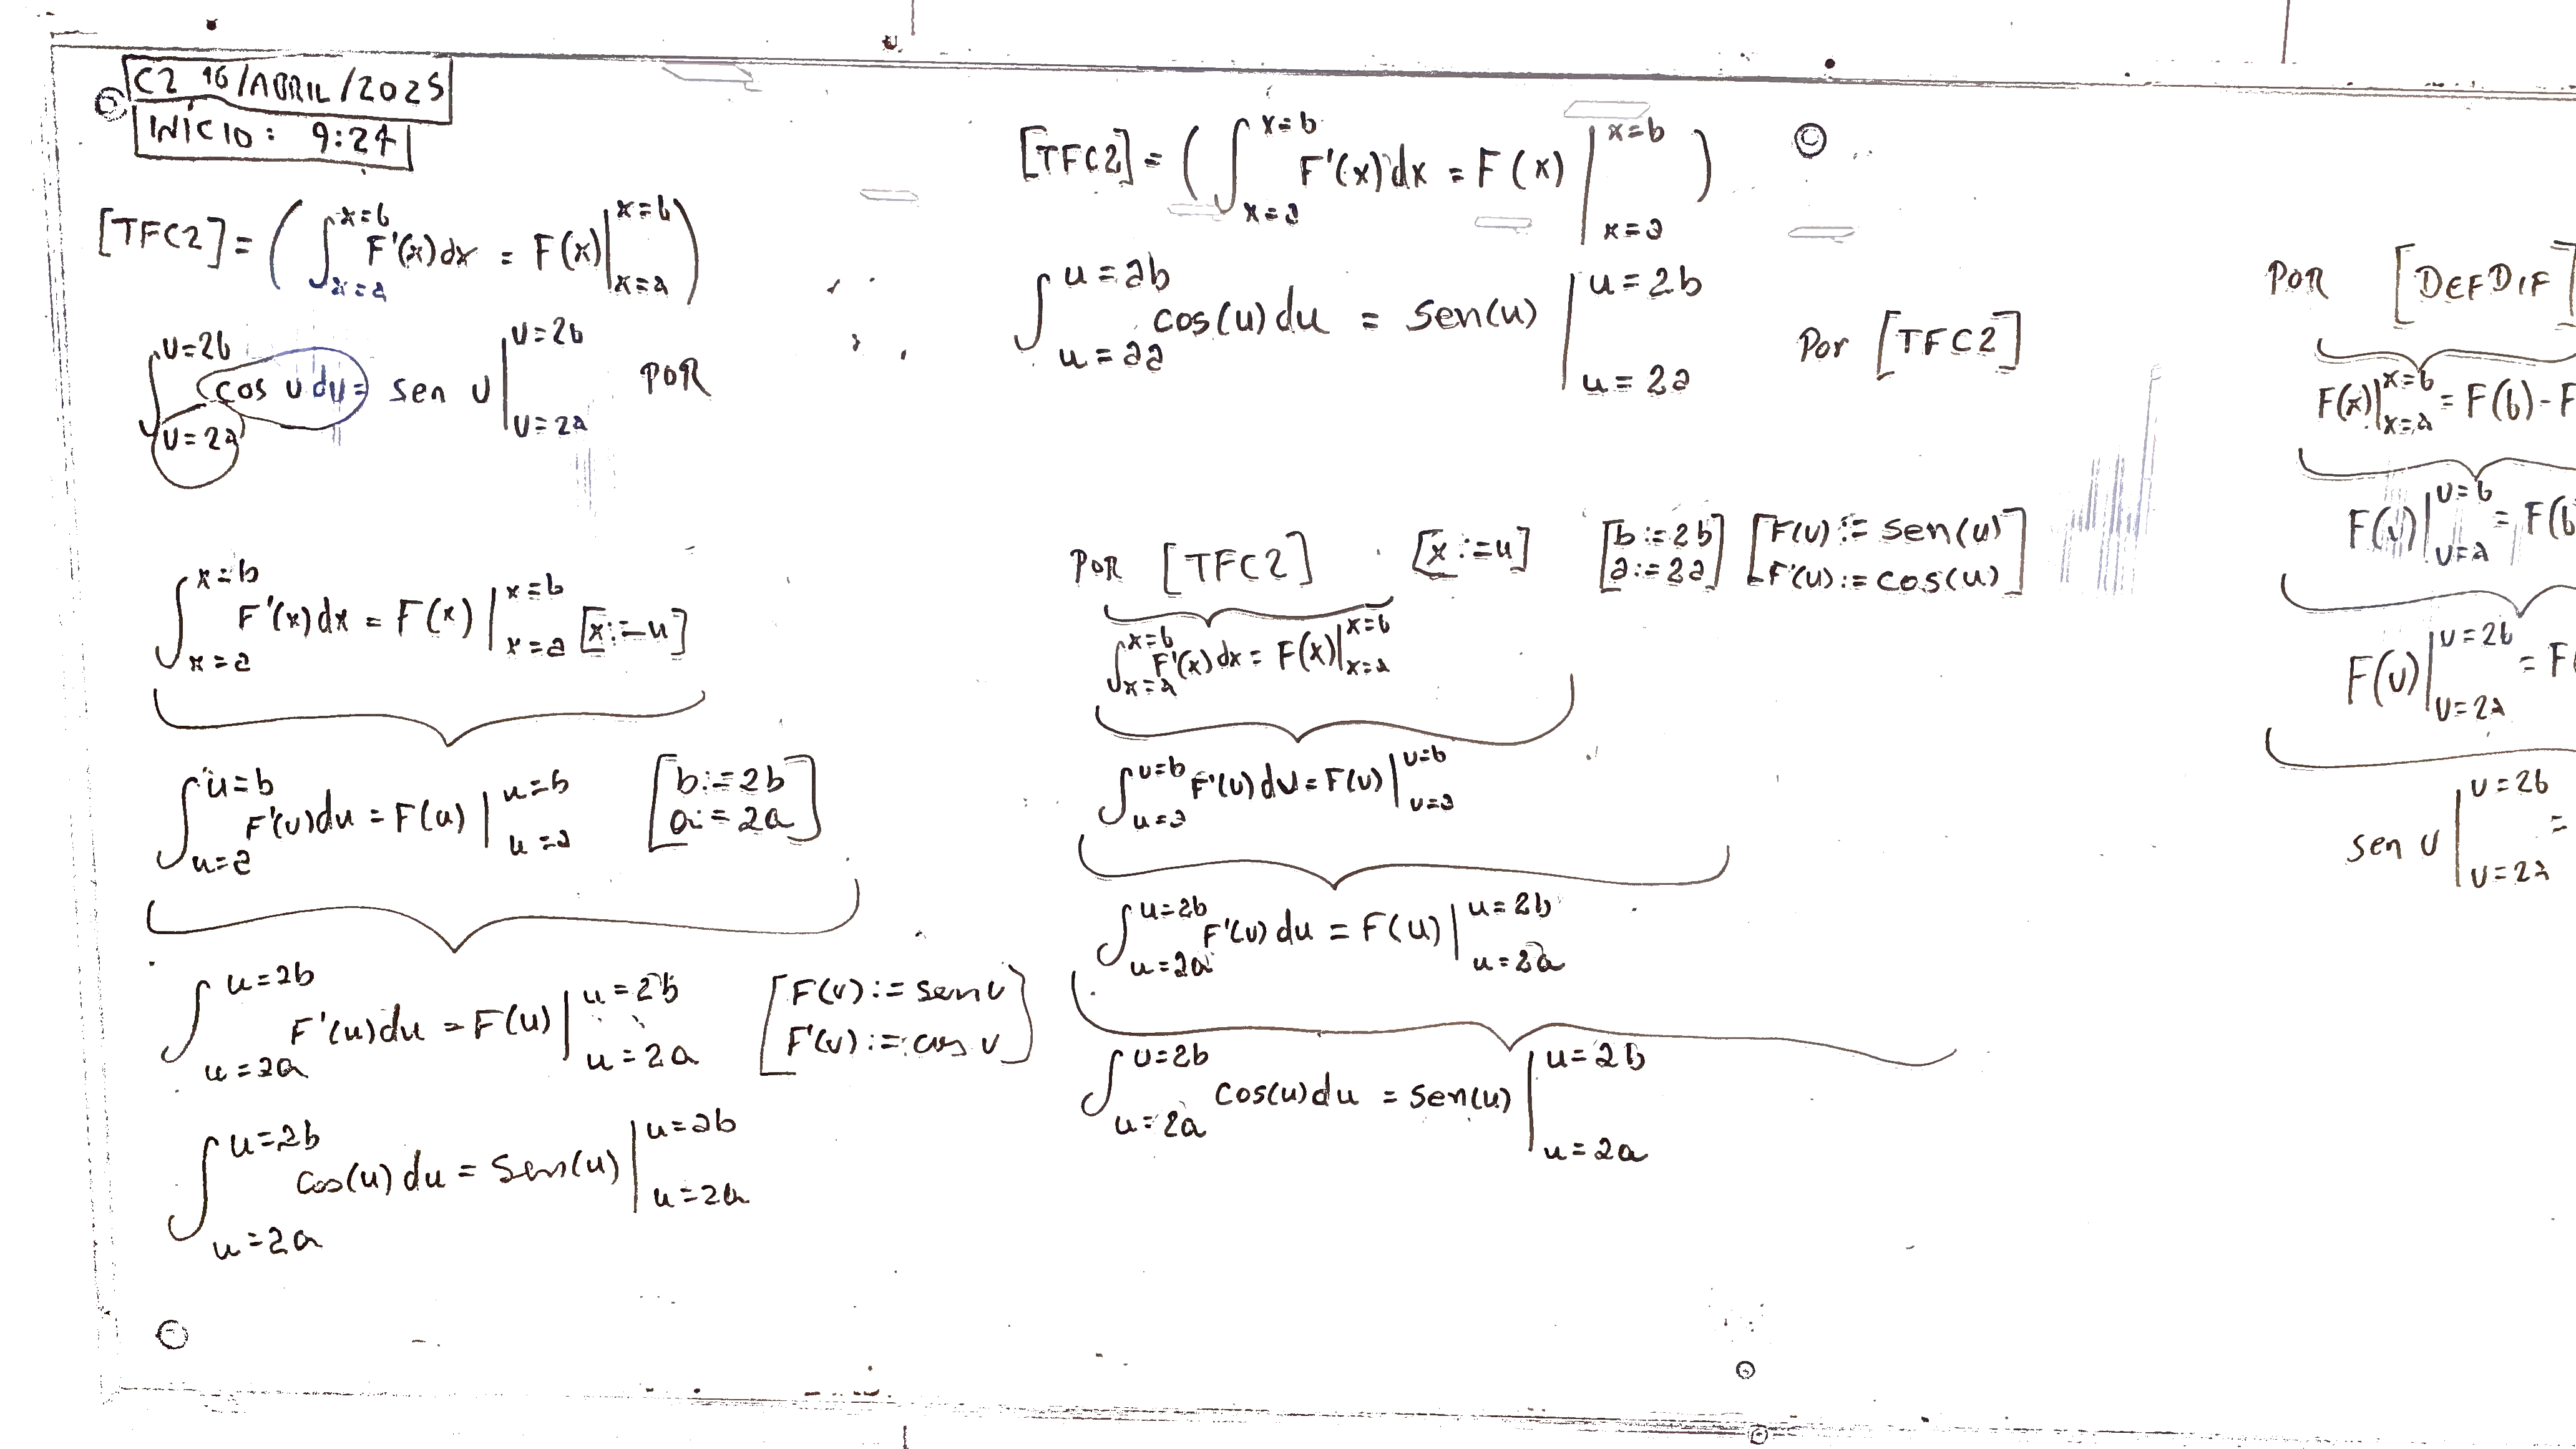 C2 16/ABRIL/2025
INÍCIO: 9:27
[TFC2] = ( ∫_{x=a}^{x=b} F'(x) dx = F(x) |_{x=a}^{x=b} )
∫_{u=2a}^{u=2b} cos u du = sen u |_{u=2a}^{u=2b} POR
∫_{x=a}^{x=b} F'(x) dx = F(x) |_{x=a}^{x=b} [x:=u]
∫_{u=a}^{u=b} F'(u) du = F(u) |_{u=a}^{u=b} [b:=2b
a:=2a]
∫_{u=2a}^{u=2b} F'(u) du = F(u) |_{u=2a}^{u=2b} [F(u):=sen u
F'(u):=cos u]
∫_{u=2a}^{u=2b} cos(u) du = sen(u) |_{u=2a}^{u=2b}
[TFC2] = ( ∫_{x=a}^{x=b} F'(x) dx = F(x) |_{x=a}^{x=b} )
∫_{u=2a}^{u=2b} cos(u) du = sen(u) |_{u=2a}^{u=2b} Por [TFC2]
POR [TFC2] [x:=u] [b:=2b
a:=2a] [F(u):=sen(u)
F'(u):=cos(u)]
∫_{x=a}^{x=b} F'(x) dx = F(x) |_{x=a}^{x=b}
∫_{u=a}^{u=b} F'(u) du = F(u) |_{u=a}^{u=b}
∫_{u=2a}^{u=2b} F'(u) du = F(u) |_{u=2a}^{u=2b}
∫_{u=2a}^{u=2b} cos(u) du = sen(u) |_{u=2a}^{u=2b}
POR [DEFDIF]
F(x) |_{x=a}^{x=b} = F(b) - F
F(u) |_{u=a}^{u=b} = F(b
F(u) |_{u=2a}^{u=2b} = F(
sen u |_{u=2a}^{u=2b} =